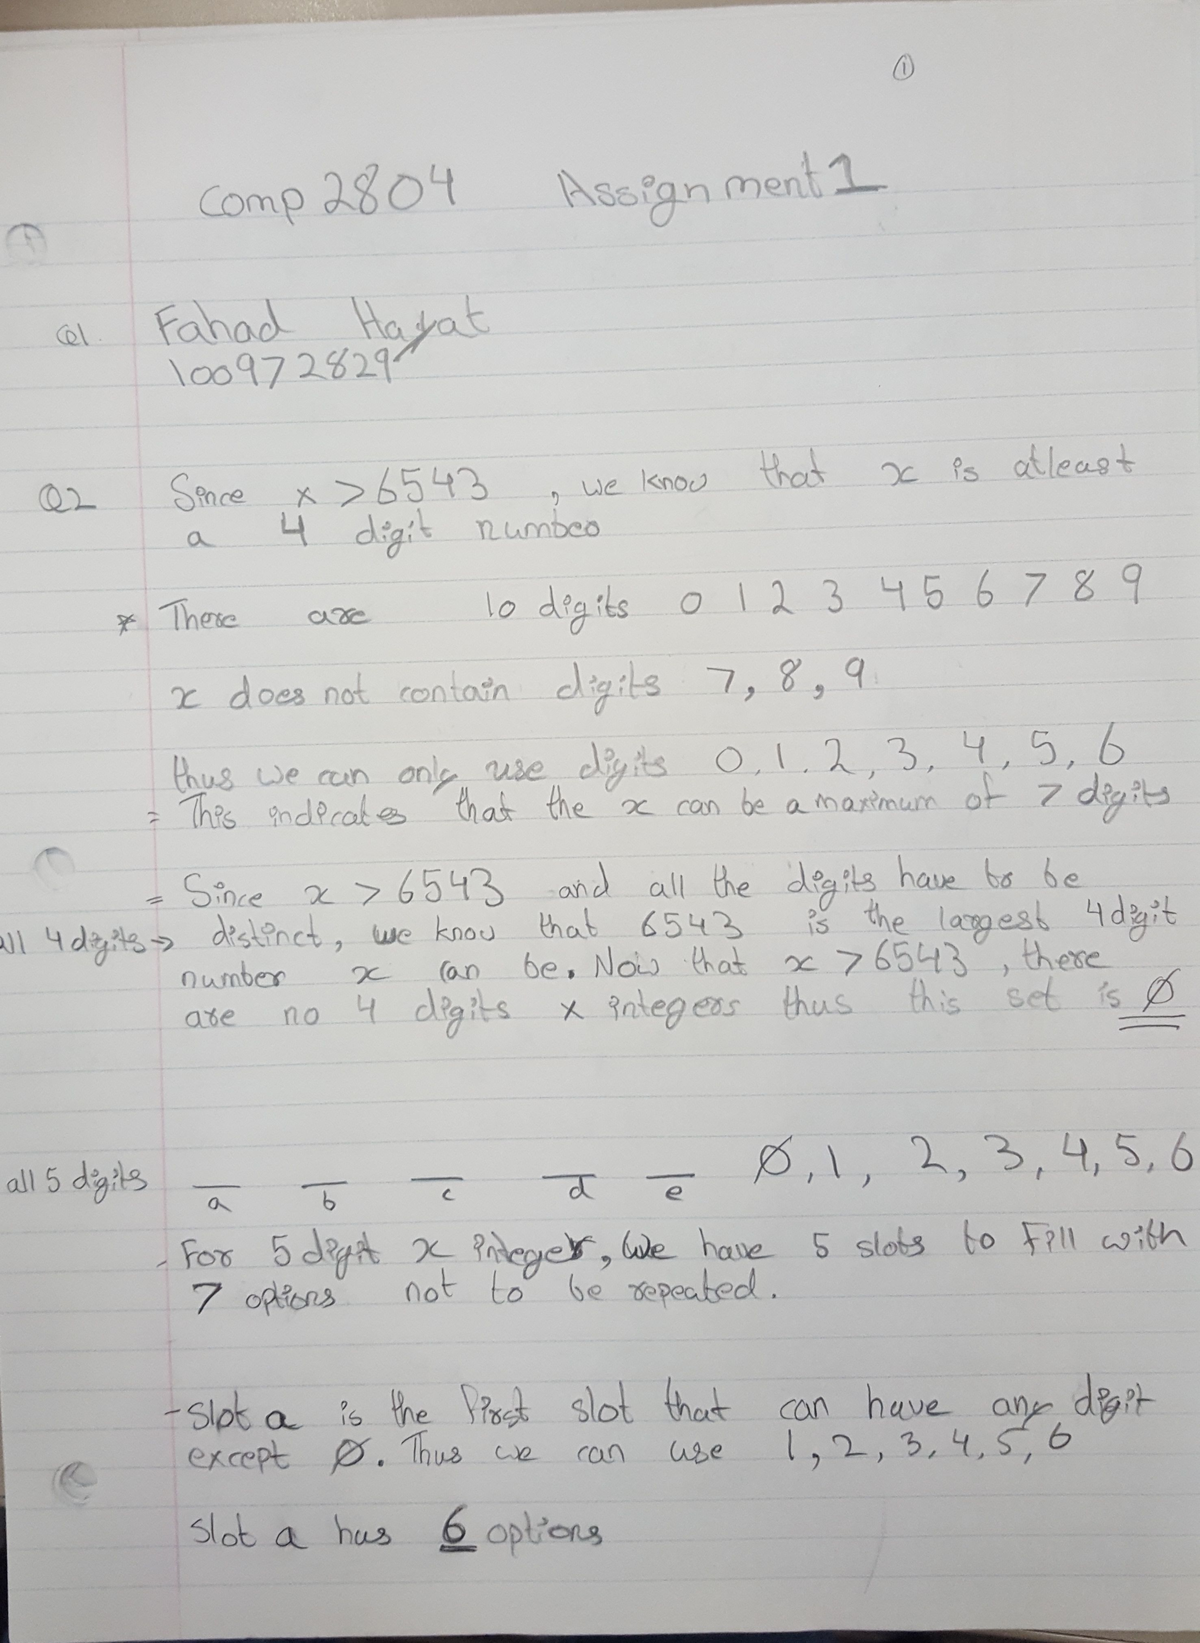 ①
Comp 2804 Assignment 1
Q1. Fahad Hayat
100972829
Q2 Since x > 6543, we know that x is atleast
a 4 digit number
* There are 10 digits 0 1 2 3 4 5 6 7 8 9
x does not contain digits 7, 8, 9
thus we can only use digits 0, 1, 2, 3, 4, 5, 6
= This indicates that the x can be a maximum of 7 digits
= Since x > 6543 and all the digits have to be
all 4 digits → distinct, we know that 6543 is the largest 4 digit
number x can be. Now that x > 6543, there
are no 4 digits x integers thus this set is Ø
all 5 digits a b c d e Ø, 1, 2, 3, 4, 5, 6
- For 5 digit x integer, we have 5 slots to fill with
7 options not to be repeated.
- Slot a is the first slot that can have any digit
except Ø. Thus we can use 1, 2, 3, 4, 5, 6
Slot a has 6 options